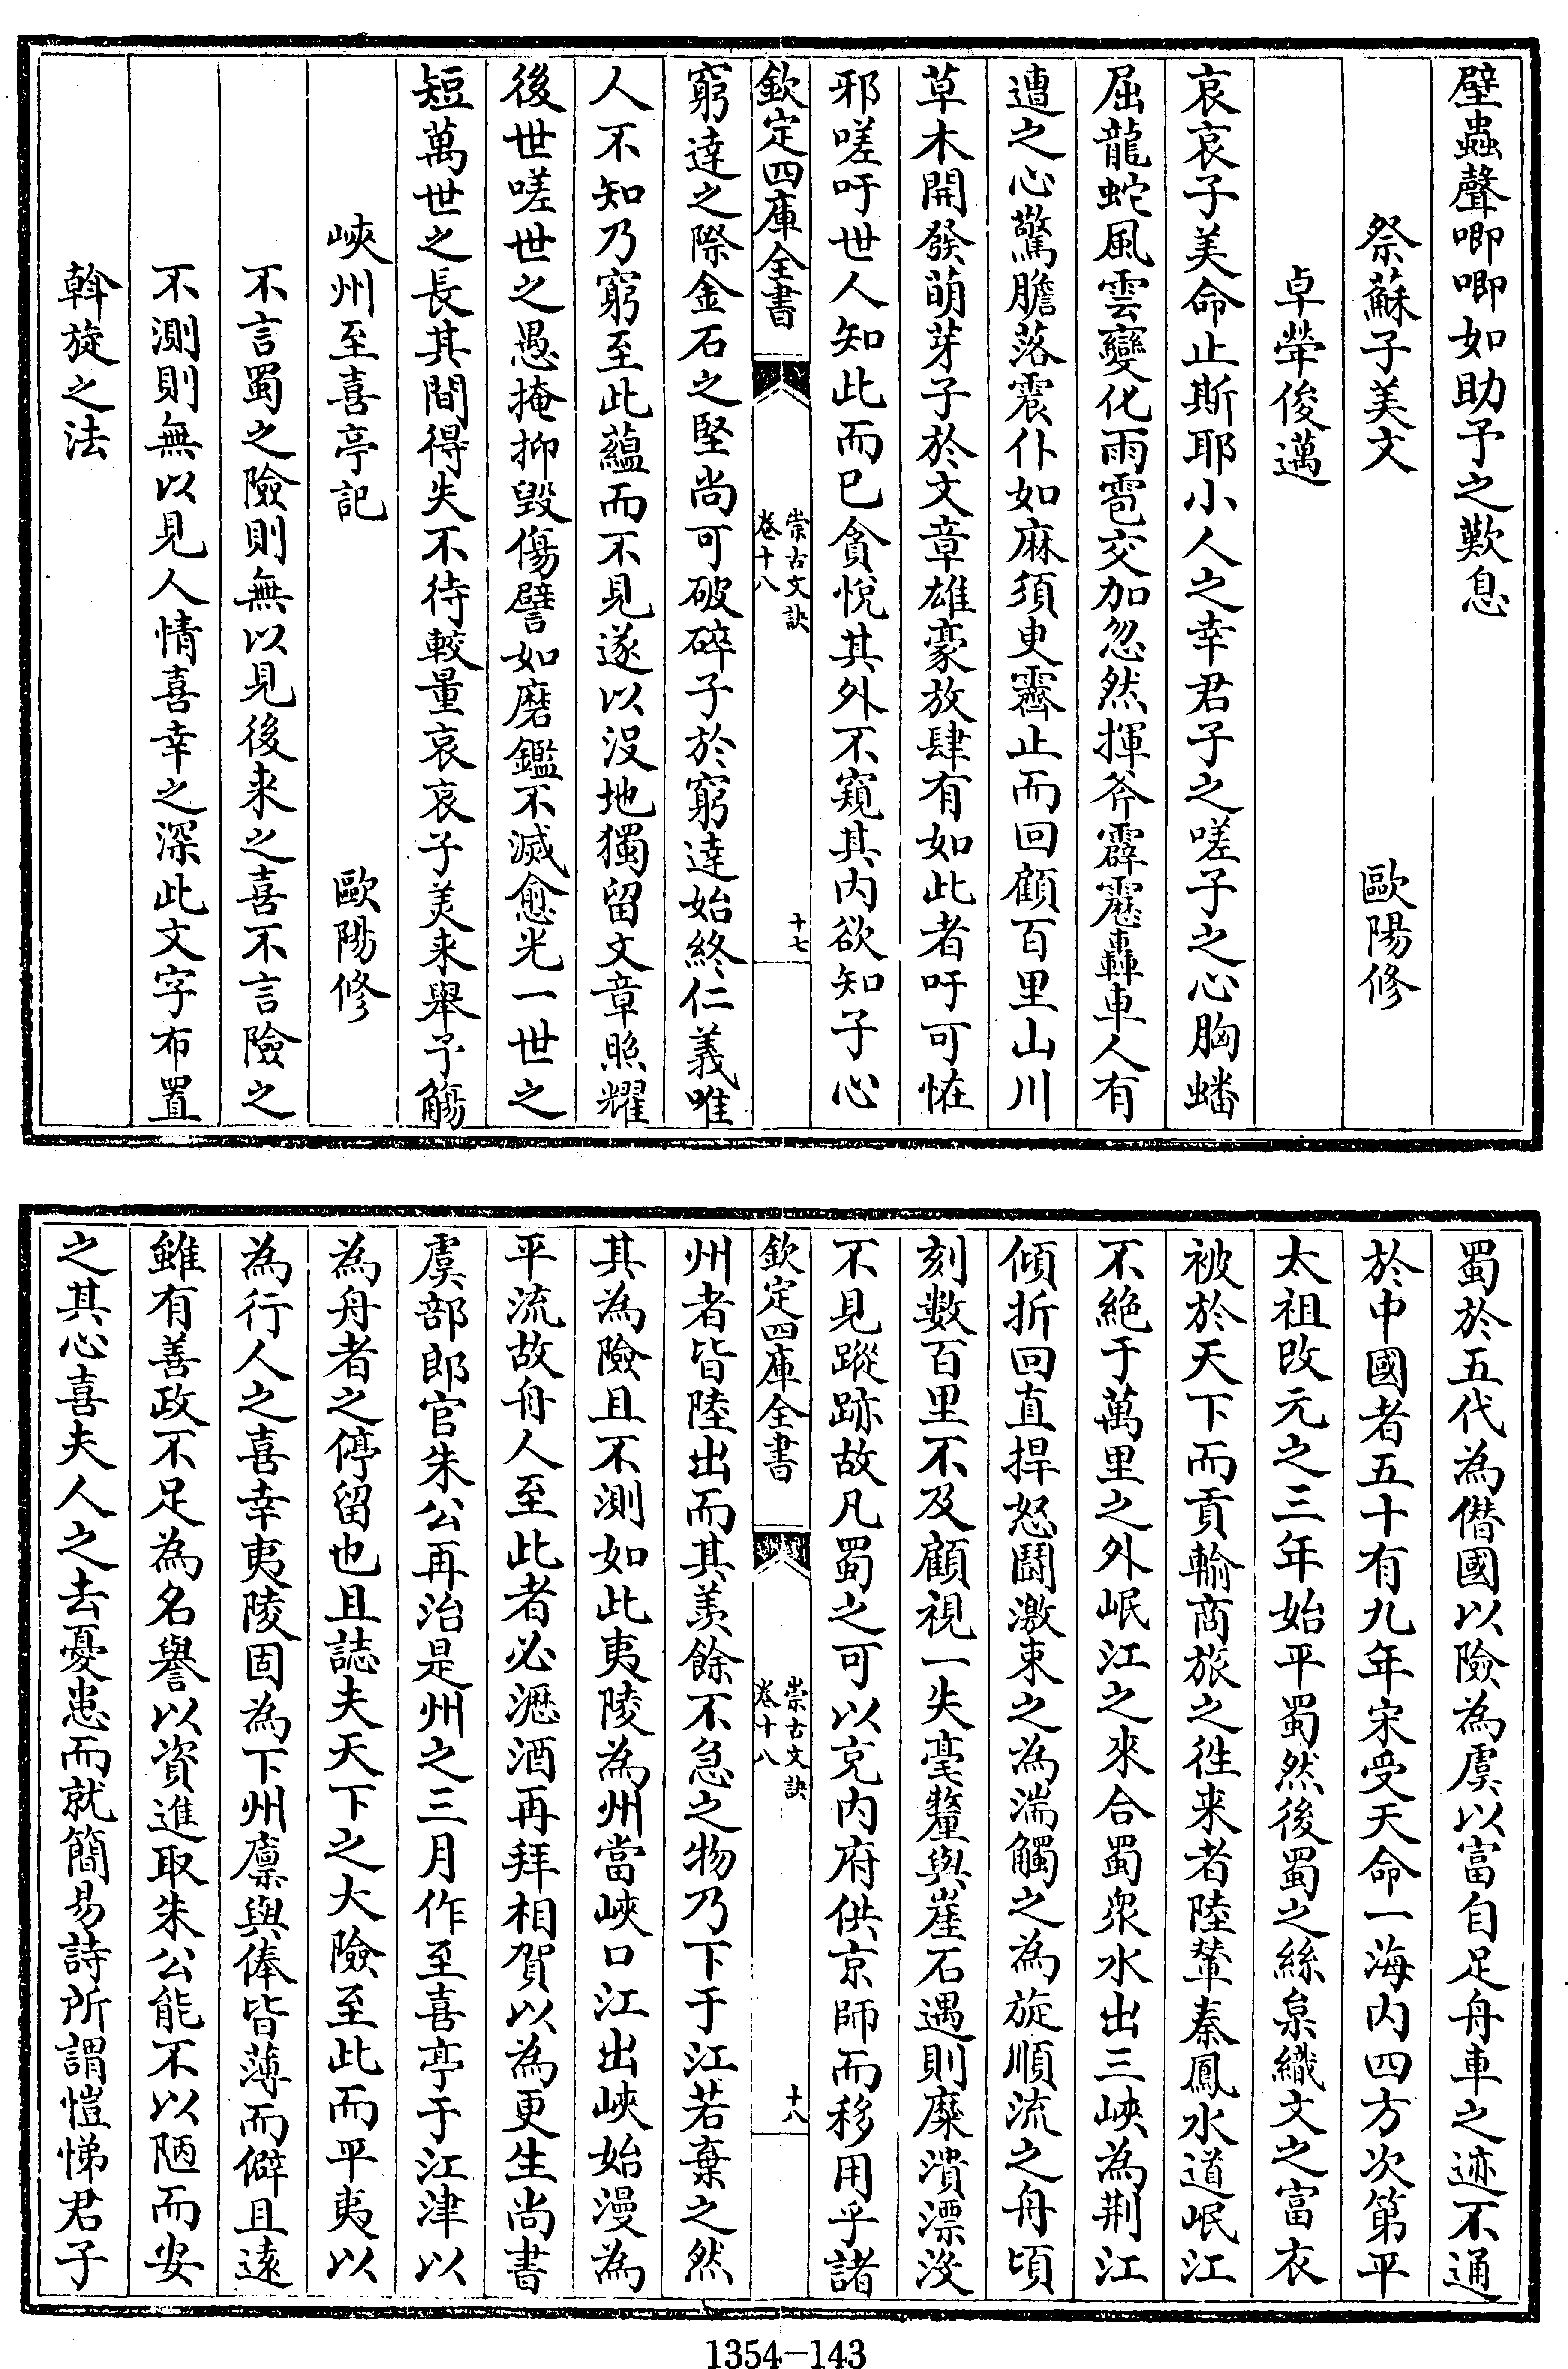 壁蟲聲唧唧如助予之歎息
祭蘇子美文 歐陽修
卓犖俊邁
哀哀子美命止斯耶小人之幸君子之嗟子之心胸蟠
屈龍蛇風雲變化雨雹交加忽然揮斧霹靂轟車人有
遭之心驚膽落震仆如麻須臾霽止而回顧百里山川
草木開發萌芽子於文章雄豪放肆有如此者吁可恠
邪嗟吁世人知此而已貪悅其外不窺其内欲知子心
欽定四庫全書 崇古文訣 卷十八 十七
窮達之際金石之堅尚可破碎子於窮達始終仁義唯
人不知乃窮至此蘊而不見遂以没地獨留文章照耀
後世嗟世之愚掩抑毀傷譬如磨鑑不滅愈光一世之
短萬世之長其間得失不待較量哀哀子美来舉予觴
峽州至喜亭記 歐陽修
不言蜀之險則無以見後来之喜不言險之
不測則無以見人情喜幸之深此文字布置
斡旋之法
蜀於五代為僭國以險為虞以富自足舟車之迹不通
於中國者五十有九年宋受天命一海内四方次第平
太祖改元之三年始平蜀然後蜀之絲枲織文之富衣
被於天下而貢輸商旅之徃来者陸輦秦鳳水道岷江
不絶于萬里之外岷江之來合蜀衆水出三峽為荆江
傾折回直捍怒鬭激束之為湍觸之為旋順流之舟頃
刻数百里不及顧視一失毫釐與崖石遇則糜潰漂没
不見蹤跡故凡蜀之可以充内府供京師而移用乎諸
欽定四庫全書 崇古文訣 卷十八 十八
州者皆陸出而其羨餘不急之物乃下于江若棄之然
其為險且不測如此夷陵為州當峽口江出峽始漫為
平流故舟人至此者必瀝酒再拜相賀以為更生尚書
虞部郎官朱公再治是州之三月作至喜亭于江津以
為舟者之停留也且誌夫天下之大險至此而平夷以
為行人之喜幸夷陵固為下州廪與俸皆薄而僻且遠
雖有善政不足為名譽以資進取朱公能不以陋而安
之其心喜夫人之去憂患而就簡易詩所謂愷悌君子
1354-143